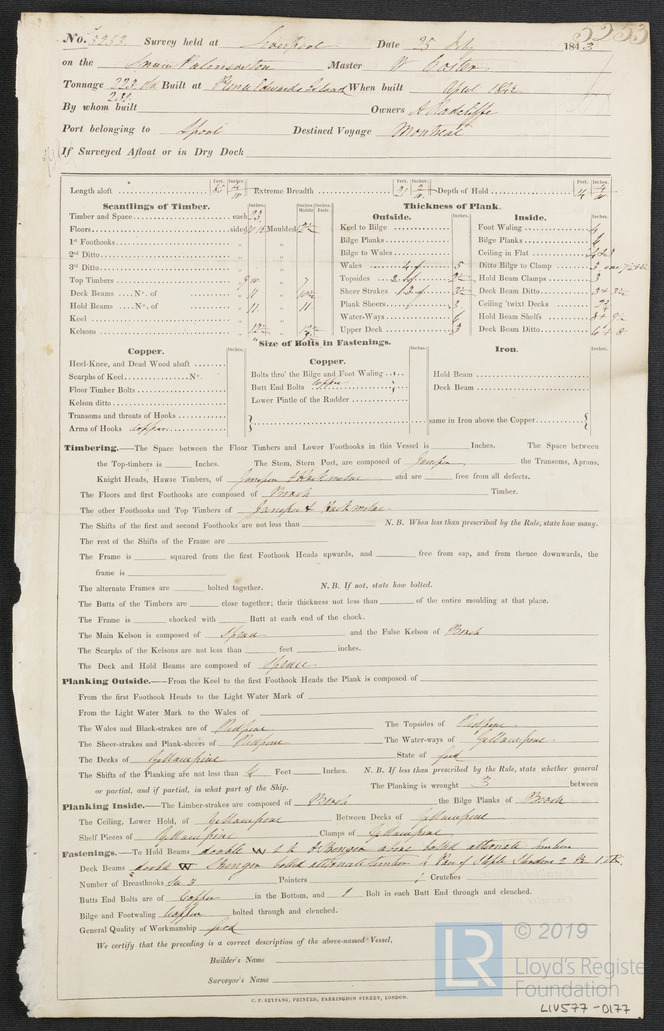 No. 5253 Survey held at Liverpool Date 25 July 1843
5253
on the Snow Palmerston Master W
Tonnage 223 Built at Prince Edwards Island When built April 1843
By whom built Owners A Radcliffe
Port belonging to Lpool Destined Voyage Montreal
If Surveyed Afloat or in Dry Dock
Length aloft Feet. Inches. Extreme Breadth Feet. Inches. 21 Depth of Hold Feet. Inches. 14
Scantlings of Timber. Inches. Inches. Middle Inches. Ends
Thickness of Plank.
Outside. Inches. Inside. Inches.
Timber and Space each 23
Floors sided Moulded
1st Foothooks " "
2nd Ditto " "
3rd Ditto " "
Top Timbers
Deck Beams No. of " 11 "
Hold Beams No. of " 11 " 11
Keel " "
Kelsons "
Keel to Bilge
Bilge Planks
Bilge to Wales
Wales 5
Topsides
Sheer Strakes
Plank Sheers 3
Water-Ways 6
Upper Deck 3
Foot Waling 4
Bilge Planks 6
Ceiling in Flat
Ditto Bilge to Clamp 3
Hold Beam Clamps 3
Deck Beam Ditto
Ceiling 'twixt Decks
Hold Beam Shelfs
Deck Beam Ditto 6 + 8
Size of Bolts in Fastenings.
Copper. Inches.
Heel-Knee, and Dead Wood abaft
Scarphs of Keel No.
Floor Timber Bolts
Kelson ditto
Transoms and throats of Hooks
Arms of Hooks Copper
Copper. Inches.
Bolts thro' the Bilge and Foot Waling
Butt End Bolts Copper
Lower Pintle of the Rudder
Iron. Inches.
Hold Beam
Deck Beam
same in Iron above the Copper
Timbering.—The Space between the Floor Timbers and Lower Foothooks in this Vessel is Inches. The Space between
the Top-timbers is Inches. The Stem, Stern Post, are composed of Juniper the Transoms, Aprons,
Knight Heads, Hawse Timbers, of Juniper & Hackmatac and are free from all defects.
The Floors and first Foothooks are composed of Birch Timber.
The other Foothooks and Top Timbers of Juniper & Hackmatac
The Shifts of the first and second Foothooks are not less than N.B. When less than prescribed by the Rule, state how many.
The rest of the Shifts of the Frame are
The Frame is squared from the first Foothook Heads upwards, and free from sap, and from thence downwards, the
frame is
The alternate Frames are bolted together. N.B. If not, state how bolted.
The Butts of the Timbers are close together; their thickness not less than of the entire moulding at that place.
The Frame is chocked with Butt at each end of the chock.
The Main Kelson is composed of Spruce and the False Kelson of Birch
The Scarphs of the Kelsons are not less than feet inches.
The Deck and Hold Beams are composed of Spruce
Planking Outside.—From the Keel to the first Foothook Heads the Plank is composed of
From the first Foothook Heads to the Light Water Mark of
From the Light Water Mark to the Wales of
The Wales and Black-strakes are of Redpine The Topsides of Redpine
The Sheer-strakes and Plank-sheers of Redpine The Water-ways of Yellowpine
The Decks of Yellowpine State of good
The Shifts of the Planking are not less than Feet Inches. N.B. If less than prescribed by the Rule, state whether general
or partial, and if partial, in what part of the Ship. The Planking is wrought 3 between
Planking Inside.—The Limber-strakes are composed of Birch the Bilge Planks of Birch
The Ceiling, Lower Hold, of Yellowpine Between Decks of Yellowpine
Shelf Pieces of Yellowpine Clamps of Yellowpine
Fastenings.—To Hold Beams double W bolted alternate timbers
Deck Beams double W Stringer bolted alternate timber
Number of Breasthooks Pointers Crutches
Butts End Bolts are of Copper in the Bottom, and 1 Bolt in each Butt End through and clenched.
Bilge and Footwaling Copper bolted through and clenched.
General Quality of Workmanship good
We certify that the preceding is a correct description of the above-named Vessel,
Builder's Name
Surveyor's Name
C. F. SEYFANG, PRINTER, FARRINGDON STREET, LONDON.
LR © 2019
Lloyd's Registe
Foundation
LIV577-0177